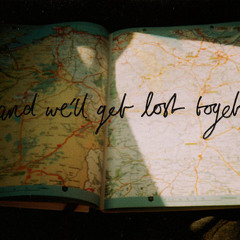 and we'll get lost togeth